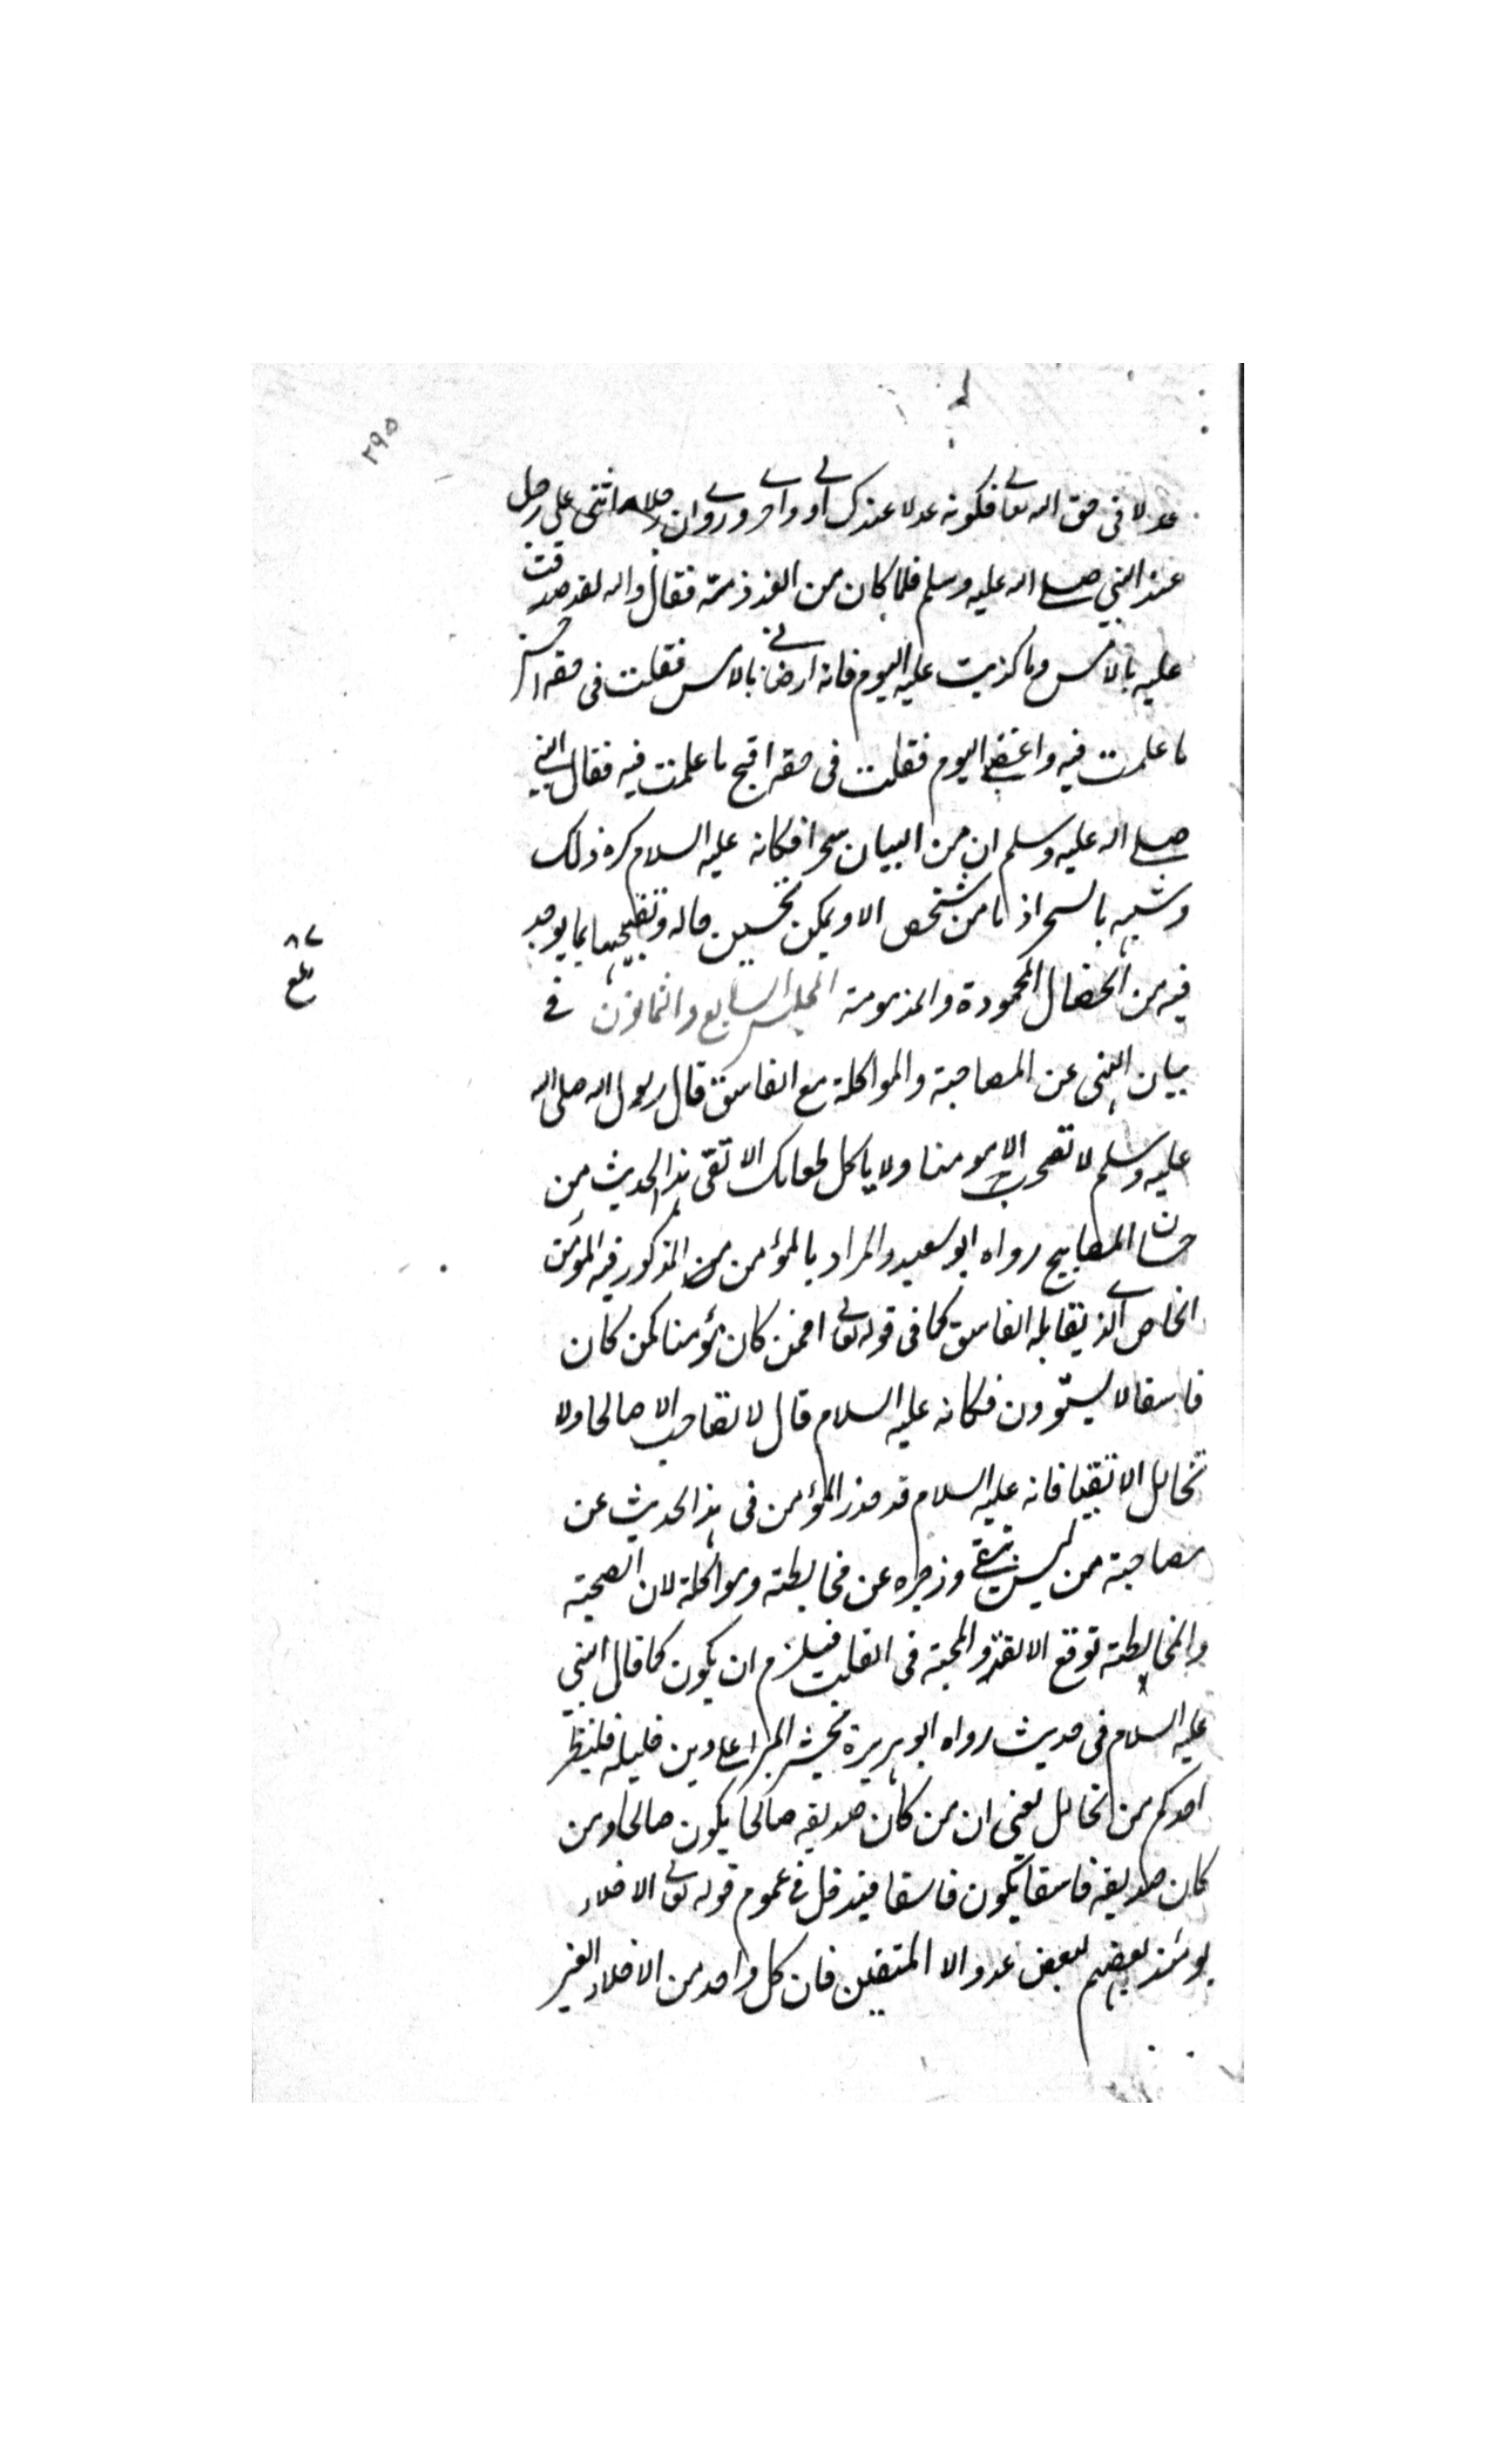 ٢٩٥
عدلا فى حق الله تعالى فكونه عدلا عندك اولى واحرى وروى ان رجلا اثنى على رجل
عند النبي صلى الله عليه وسلم فلما كان من الغد ذمّه فقال والله لقد صدقت
عليه بالامس وما كذبت عليه اليوم فانه ارضانى بالامس فقلت فى حقه احسن
ما علمت فيه واغضبنى اليوم فقلت فى حقه اقبح ما علمت فيه فقال النبي
صلى الله عليه وسلم ان من البيان سحرا فكانه عليه السلام كره ذلك
وشبهه بالسحر اذ ما من شخص الا ويمكن تحسين حاله وتقبيحها بما يوجد
فيه من الخصال المحمودة والمذمومة المجلس السابع والثمانون فى
٨٧
بلغ
بيان النهى عن المصاحبة والمواكلة مع الفاسق قال رسول الله صلى الله
عليه وسلم لا تصحب الا مومنا ولا ياكل طعامك الا تقى هذا الحديث من
حسان المصابيح رواه ابو سعيد والمراد بالمؤمن من المذكور فيه المؤمن
الخاص الذى يقابله الفاسق كما فى قوله تعالى افمن كان مؤمنا كمن كان
فاسقا لا يستوون فكانه عليه السلام قال لا تصاحب الا صالحا ولا
تخالل الا تقيا فانه عليه السلام قد حذر المؤمن فى هذا الحديث عن
مصاحبة من ليس بتقى وزجره عن مخالطته ومواكلة لان الصحبة
والمخالطة توقع الالفة والمحبة فى القلب فيلزم ان يكون كما قال النبي
عليه السلام فى حديث رواه ابو هريرة يحشر المرء على دين خليله فلينظر
احدكم من يخالل يعنى ان من كان صديقه صالحا يكون صالحا ومن
كان صديقه فاسقا يكون فاسقا فيدخل فى عموم قوله تعالى الاخلاء
يومئذ بعضهم لبعض عدو الا المتقين فان كل واحد من الاخلاء الغير